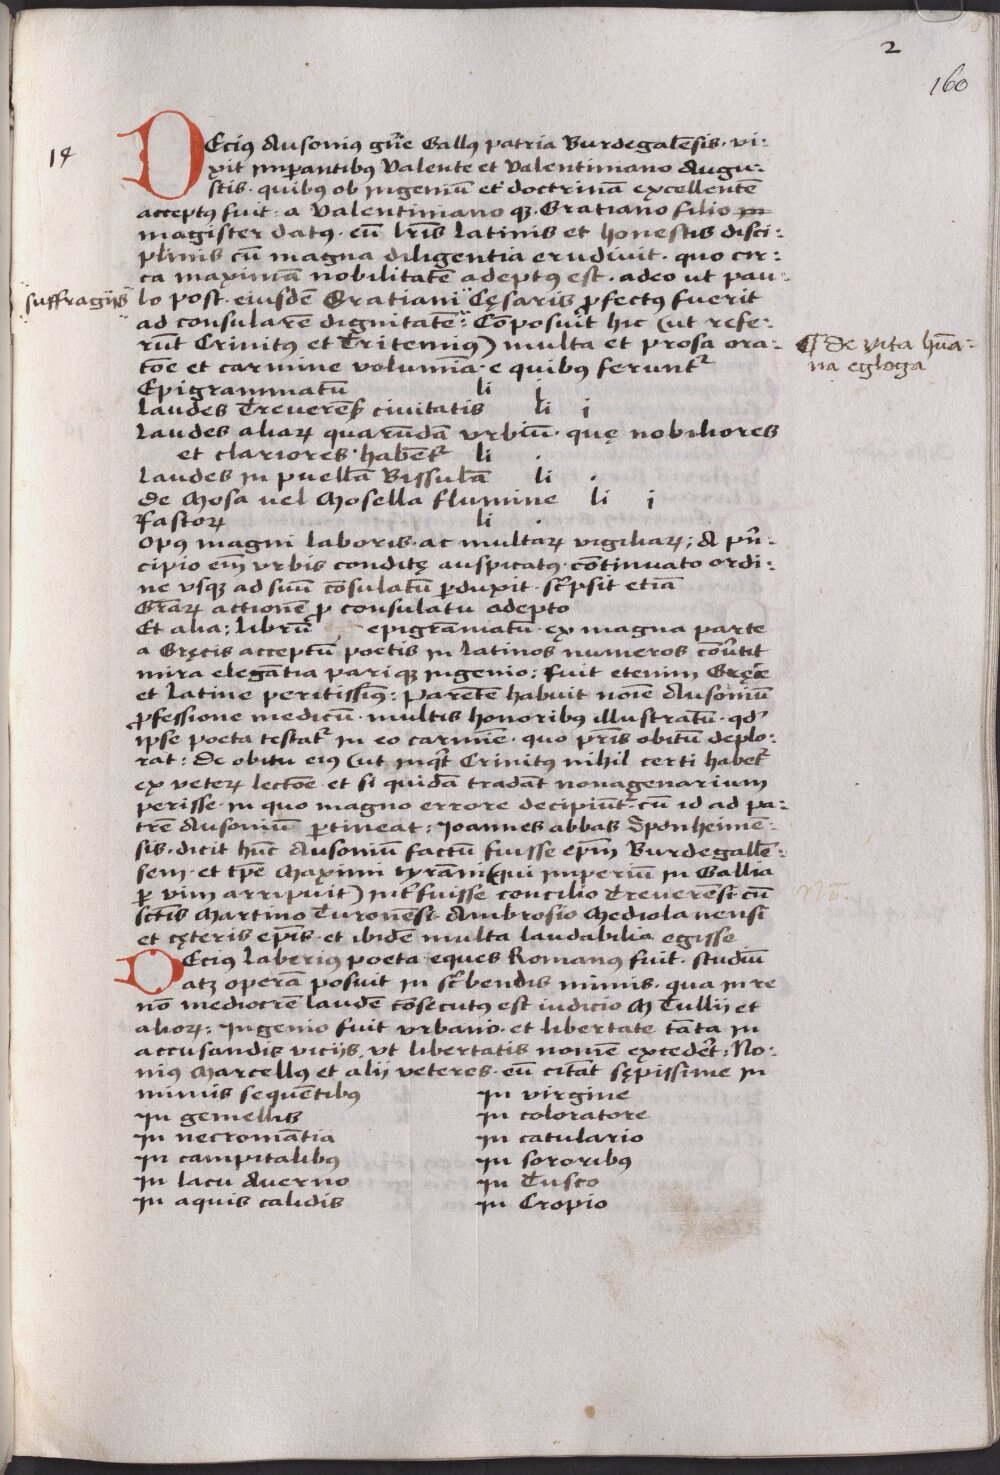 2
160
14
DEcius Ausonius gñe Gallus patria Burdegalēsis · vi:
xit imꝑantibus Valente et Valentiniano Augu:
stis · quibus ob ingeniū et doctrinā excellentē
acceptus fuit : a Valentiniano qꝫ · Gratiano filio
magister datus · eū lr̄is latinis et honestis disci:
plinis cū magna diligentia erudiuit · quo cir:
ca maximā nobilitatē adeptus est · adeo ut pau:
suffragijs
lo post · eiusdē Gratiani Cęsaris p̄fectus fuerit
ad consularē dignitatē : Cōposuit hic (ut refe:
¶ De vita hūa:
na egloga
rūt Crinitus et Tritemius) multa et prosa ora:
tōe et carmine volumīa · e quibus ferunt᷑
Epigrammatū li i
Laudes Treuerēs ciuitatis li i
Laudes aliaꝝ quarūdā vrbiū · quę nobiliores
et clariores · habēt᷑ li ·
Laudes in puellā Bissulā li ·
De Mosa uel Mosella flumine li i
Fastoꝝ li ·
Opus magni laboris · ac multaꝝ vigiliaꝝ ; A prī:
cipio em̄ vrbis conditę auspicatus · cōtinuato ordi:
ne vsqꝫ ad suū cōsulatū ꝑduxit · sc̄psit etiā
Gr̄aꝝ actionē ꝓ consulatu adepto
Et alia ; librū epigrāmatū · ex magna parte
a Gręcis acceptū poetis in latinos numeros cōu̓tit
mira elegātia pariqꝫ ingenio : fuit etenim Gręce
et latine peritissim̄us : parētē habuit noīe Ausoniū
ꝓfessione medicū · multis honoribus illustratū · qd̓
ipse poeta testat᷑ in eo carmīe · quo pr̄is obitū deplo:
rat : De obitu eius (ut inqt Crinitus nihil certi habet᷑
ex veteꝝ lectōe · et si quidā tradāt nonagenarium
perisse · in quo magno errore decipiūt᷑ · cū id ad pa:
trē Ausoniū ꝑtineat : Joannes abbas Spanheimē:
sis · dicit hūc Ausoniū factū fuisse ep̄m Burdegallē:
sem · et tp̄e Maximi tyrāni (qui imperiū in Gallia
No.
ꝑ vim arripuit) int̄fuisse concilio Treuerēsi cū
sctīs Martino Turonēsi · Ambrosio Mediolanensi
et cęteris ep̄is · et ibidē multa laudabilia egisse
DEcius Laberius poeta · eques Romanus fuit · studiū
atqꝫ operā posuit in sc̄bendis mimis · qua in re
nō mediocrē laudē cōsecutus est iudicio M Tullij et
alioꝝ : Ingenio fuit vrbano · et libertate tāta in
accusandis vicijs · vt libertatis nomē excedet̄ : No:
nius Marcellus et alij veteres · eū citāt sępissime in
mimis sequētibus
In gemellis
In necromātia
In campitalibus
In lacu Auerno
In aquis calidis
In virgine
In coloratore
In catulario
In sororibus
In Tusco
In Cropio